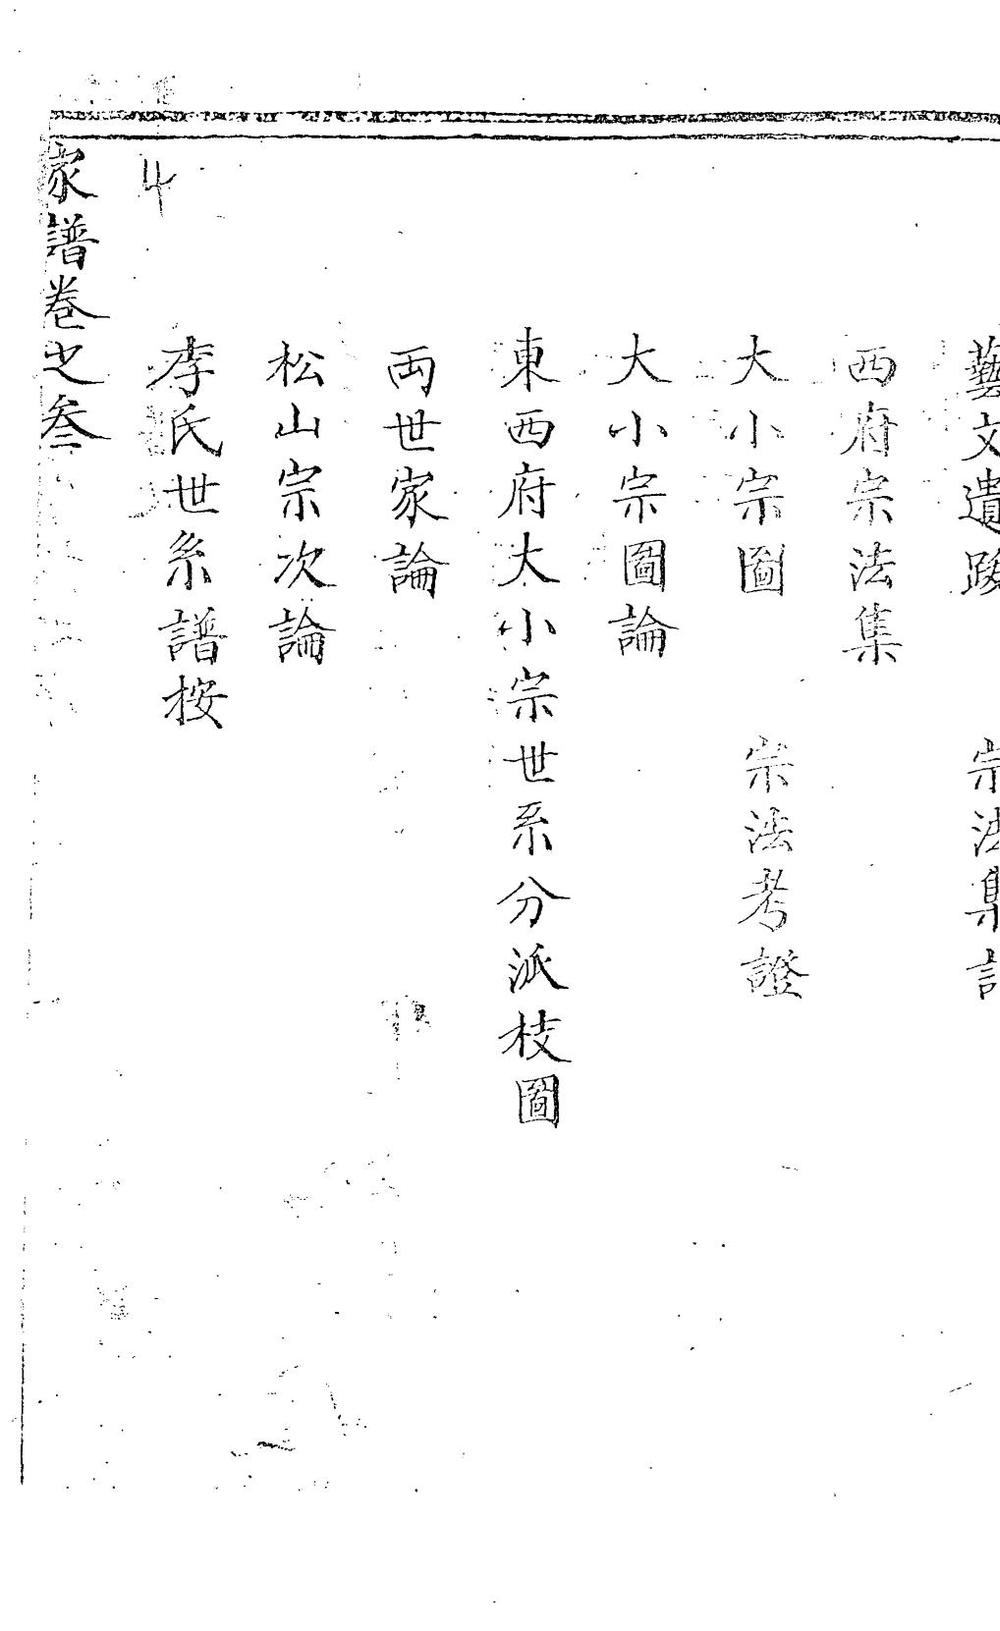 藝文遺跡 宗法集
西府宗法集
大小宗圖 宗法考證
大小宗圖論
東西府大小宗世系分派枝圖
両世家論
松山宗次論
李氏世系譜按
4
家譜卷之叁